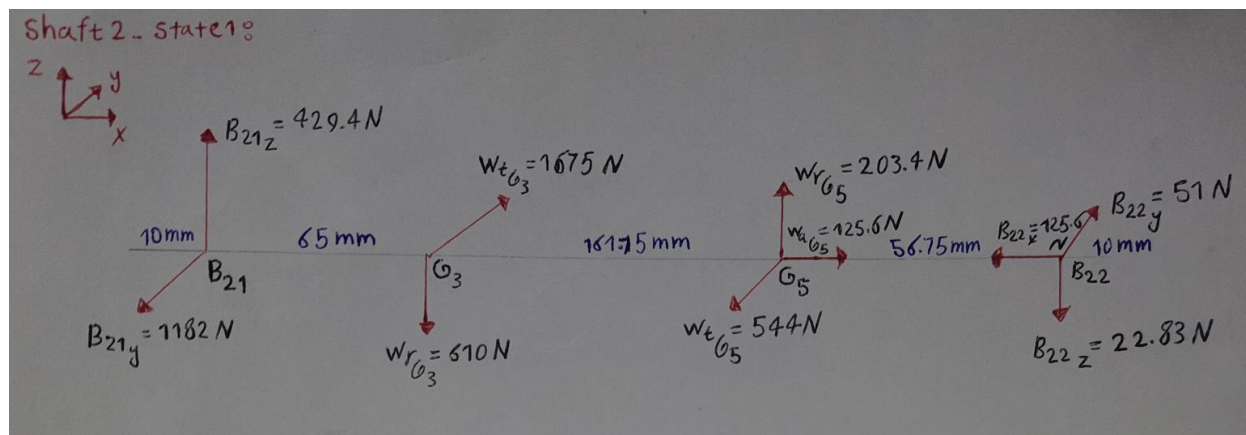 Shaft 2 - State 1:
z
y
x
B21z = 429.4 N
WtG3 = 1675 N
WrG5 = 203.4 N
B22y = 51 N
WaG5 = 125.6 N
B22x = 125.6 N
10 mm
65 mm
161.15 mm
56.75 mm
10 mm
B21
G3
G5
B22
B21y = 1182 N
WrG3 = 610 N
WtG5 = 544 N
B22z = 22.83 N